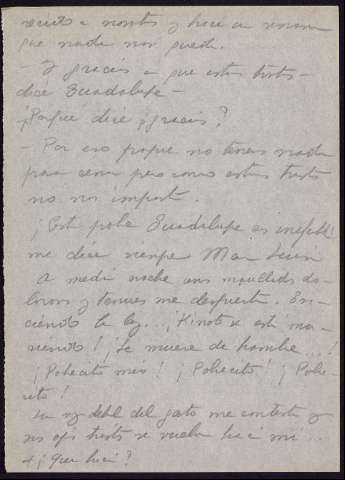 a nosotros y hace un
que nada nos queda.
- Y gracias a que estás triste -
dice Guadalupe -
- ¿Porque dice ¡gracias?
- Por eso porque no tenemos nada
para cenar pero como estás triste
no nos importa.
¡Esta pobre Guadalupe es inefable
me dice siempre
A media noche unos maullidos do-
lorosos y tenues me despiertan. En-
ciendo la luz. ¡ está mu-
riendo! ¡Se muere de hambre...!
¡Pobrecito mío! ¡Pobrecito! ¡Pobre-
cito!
La voz debil del gato me contesta y
sus ojos tristes se vuelven hacia mi...
¿Que hacer?